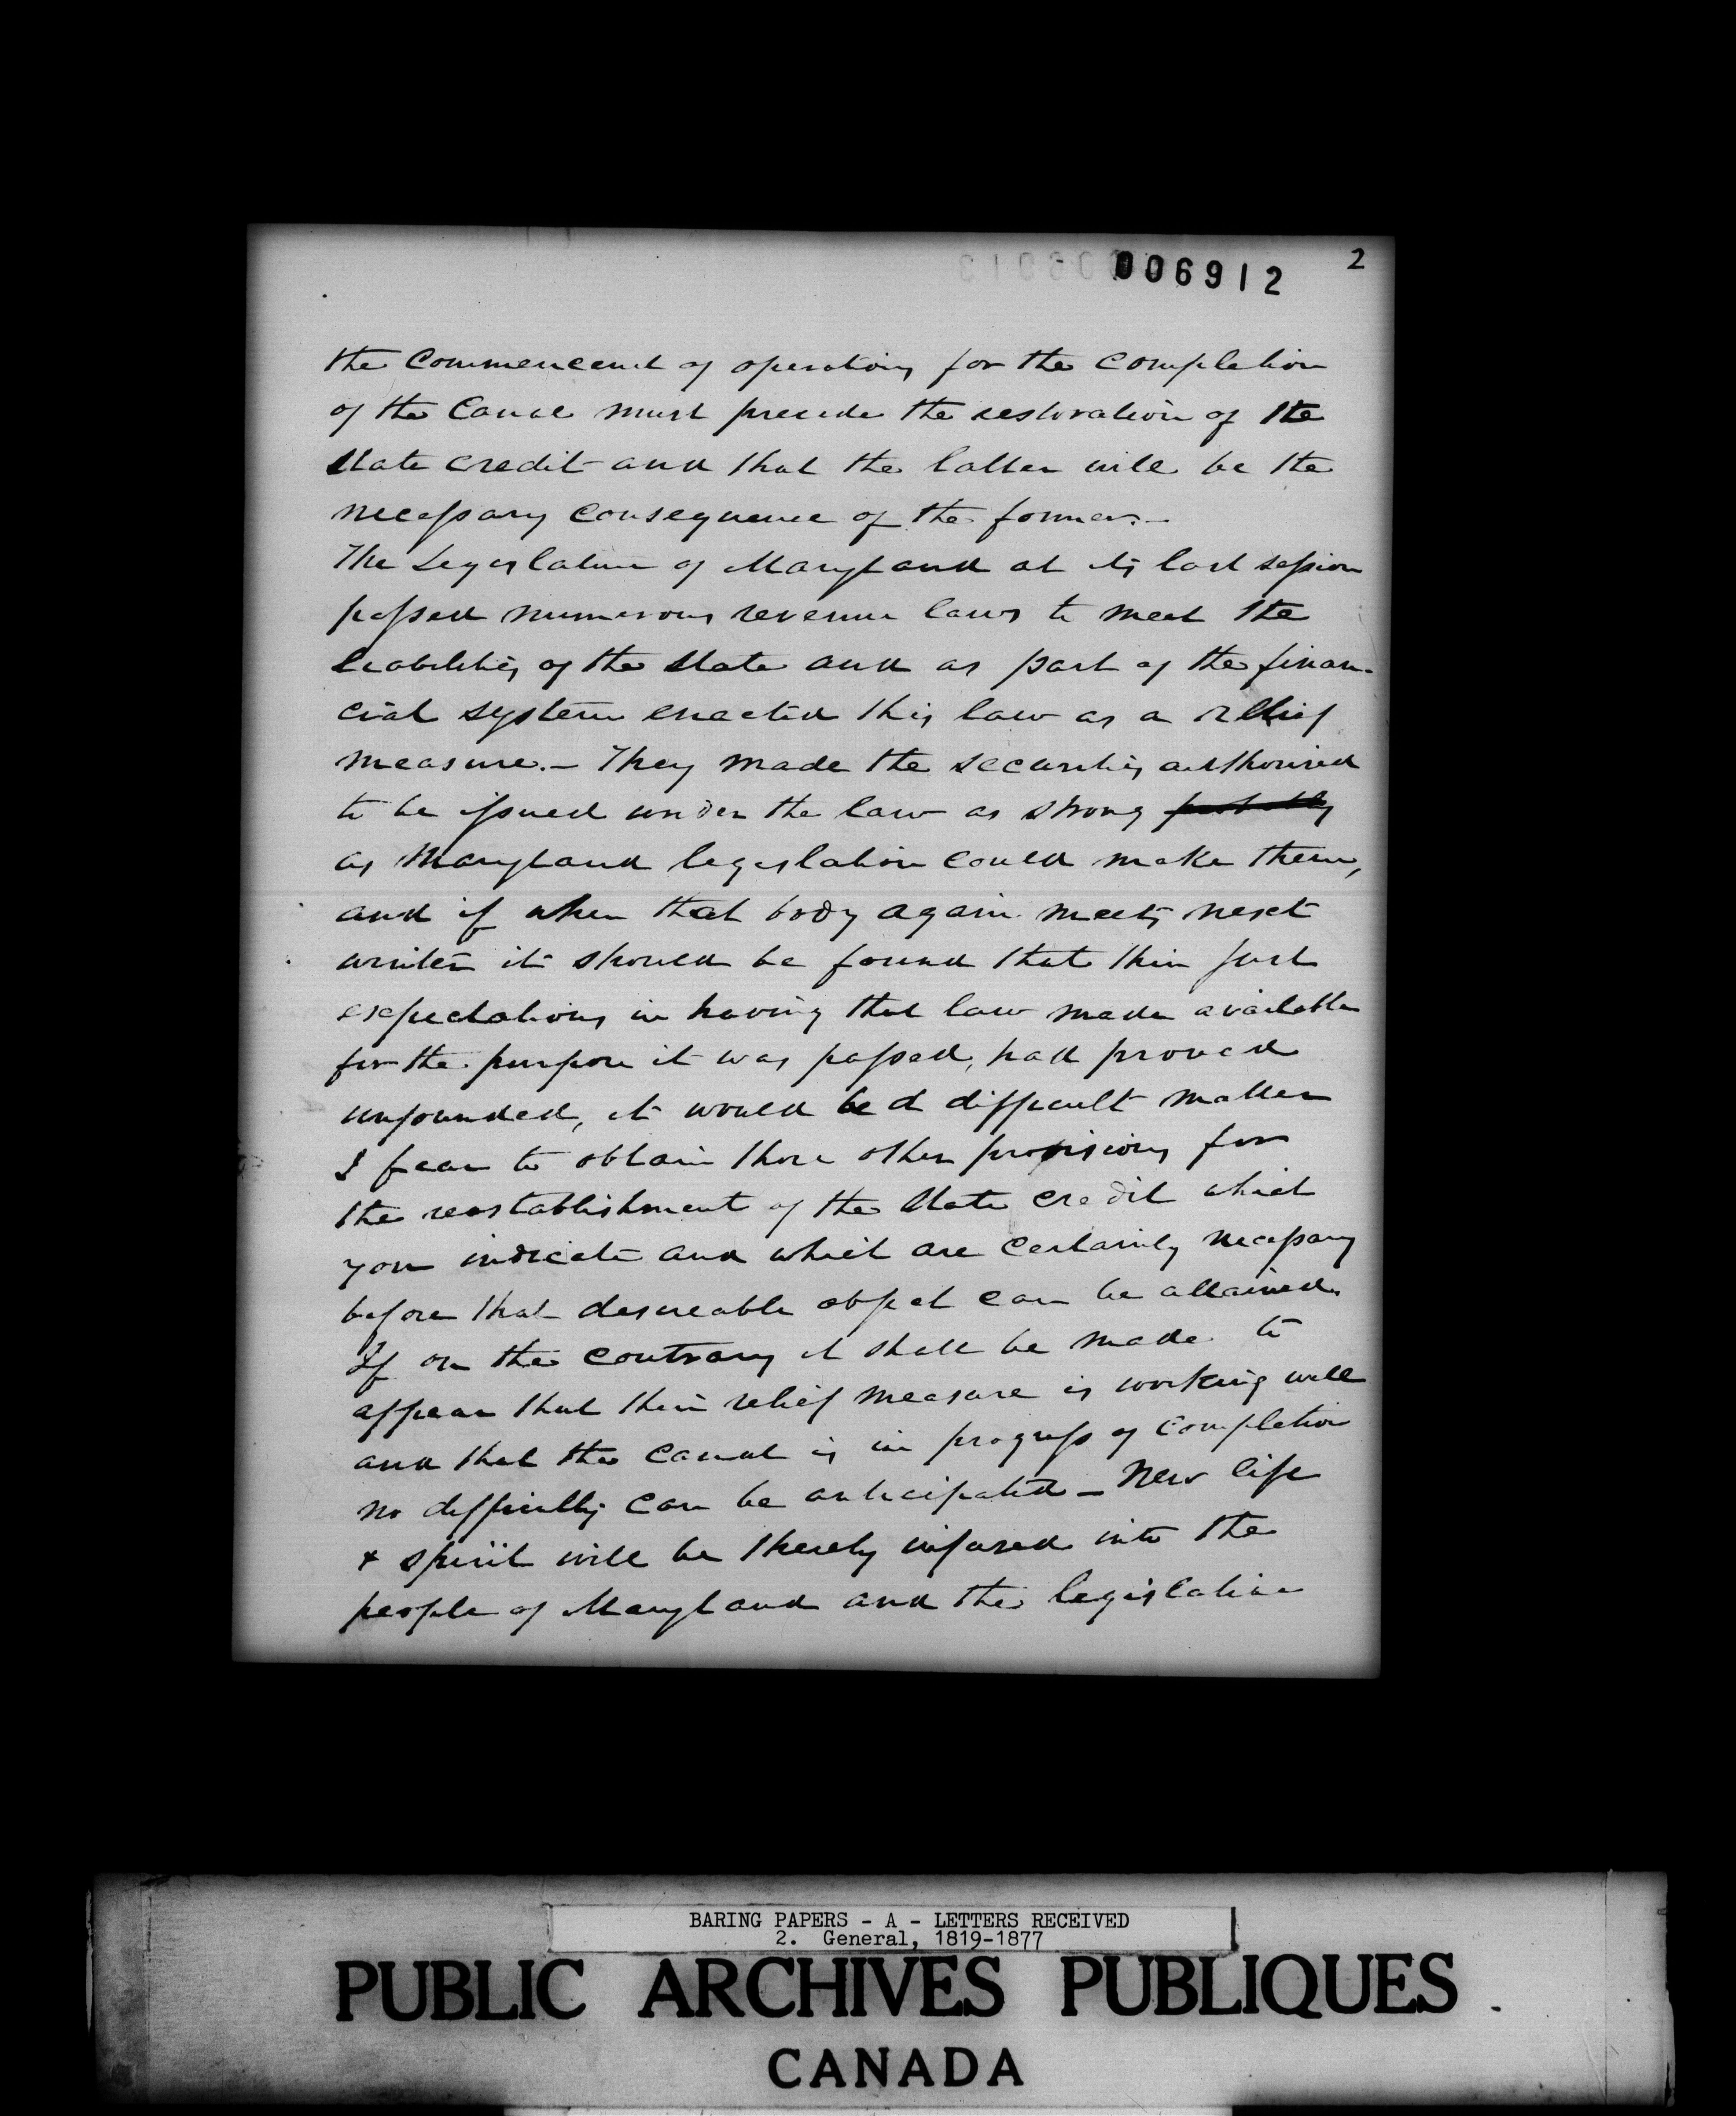 006912
2
the Commencemt of operations for the Completion
of the Canal must precede the restoration of the
State credit and that the latter will be the
necessary consequence of the former.—
The Legislature of Maryland at its last session
passed numerous revenue laws to meet the
liabilities of the State and as part of the finan-
cial system enacted this law as a relief
measure.— They made the securities authorised
to be issued under the law as strong
as Maryland legislation could make them,
and if when that body again meets next
winter it should be found that their just
expectations in having that law made available
for the purpose it was passed, had proved
unfounded, it would be a difficult matter
I fear to obtain those other provisions for
the reestablishment of the State credit which
you indicate and which are certainly necessary
before that desireable object can be attained.
If on the contrary it shall be made to
appear that their relief measure is working well
and that the Canal is in progress of completion
no difficulty can be anticipated — New life
& spirit will be thereby infused into the
people of Maryland and the legislative
BARING PAPERS - A - LETTERS RECEIVED
2. General, 1819-1877
PUBLIC ARCHIVES PUBLIQUES
CANADA